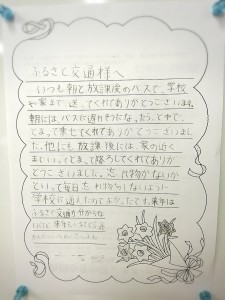 ふるさと交通様へ
いつも朝と放課後のバスで、学校
や家まで、送ってくれてありがとうございます。
朝には、バスに遅れそうだなったとき、
とまって乗せてくれてありがとうございまし
た。他にも放課後には、家の近く
まといってとまって降ろしてくれてありが
とうございます。忘れ物がないか
といって毎日忘れ物しないように
学校に通えたのでよかったです。来年は
ふるさと交通か分からな
いけど来年も